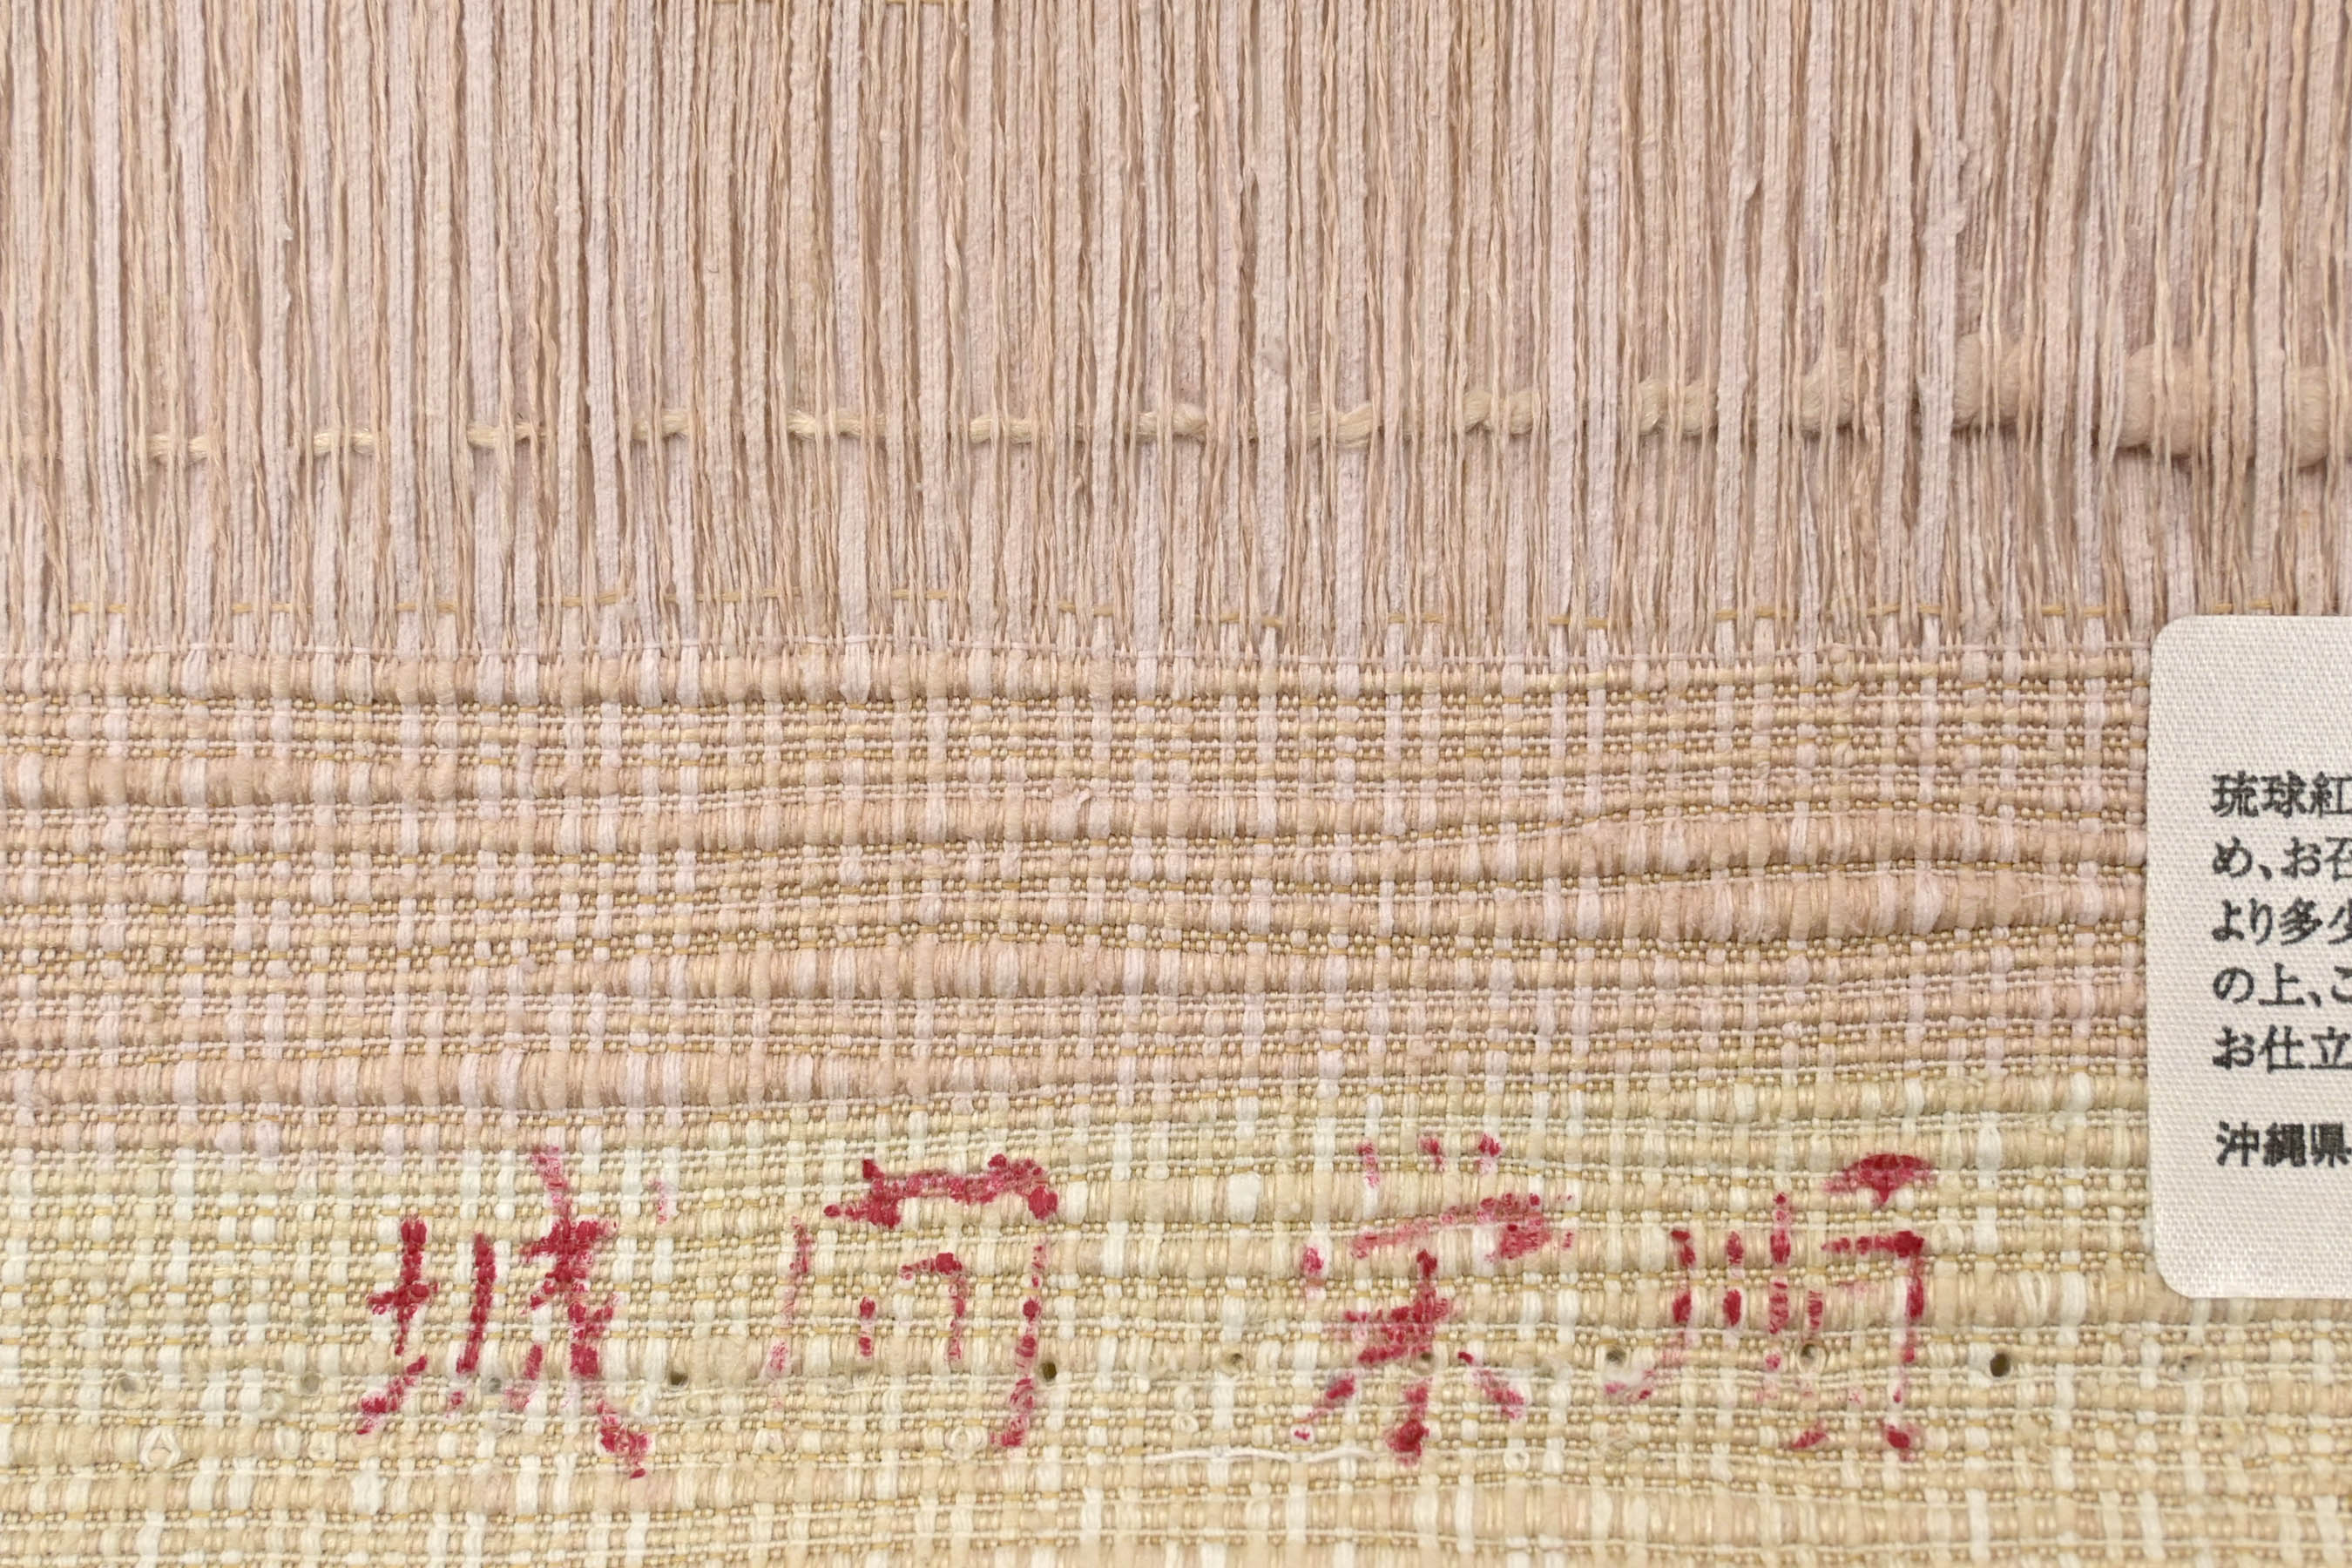 琉球紅
め、お召
より多少
の上、こ
お仕立
沖縄県
城間栄順